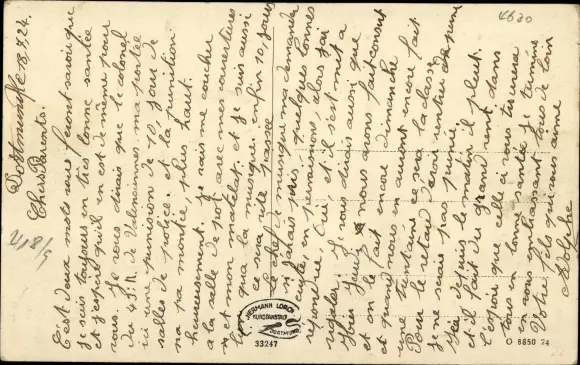 Dortmund le 18.7.24.
Chers Parents.
C'est deux mots vous faisant savoir que
je suis toujours en très bonne santée
et j'espère qu'il en est de même pour
vous. Je vous dirais que le colonel
du 43e R. de Valenciennes m'a portée
ici une punission de 10 jours de
salles de police. et la punition
n'a pas montée, plus haut.
heureusement. je vais me coucher
à la salle de pol. avec mes couvertures
et mon matelat. et je suis aussi
bien qu'a la musique. enfin 10 jours
ce sera vite passée
Le chef de musique m'a demander
si j'avais pris quelques bonnes
cuites, en permission, alors j'ai
répondue Oui, et il s'est mit à
rigoler. Je vous dirais aussi que
hier Jeudi nous avons fait concert
et on le fait encore dimanche
et quand nous en auront encore fait
une trentaine ce sera la classe
Pour le retard d'avoir rentrer de perme
je ne serais pas punie.
Ici depuis le matin il pleut.
et il fait du grand vent dans
l'espoir que celle ci vous trouvera
tous en bonne santée Je termine
en vous embrassant tous de loin
Votre fils qui vous aime
Adolphe
4630
HERMANN LORCH
KUNSTANSTALT
DORTMUND
33247
C 8850 24